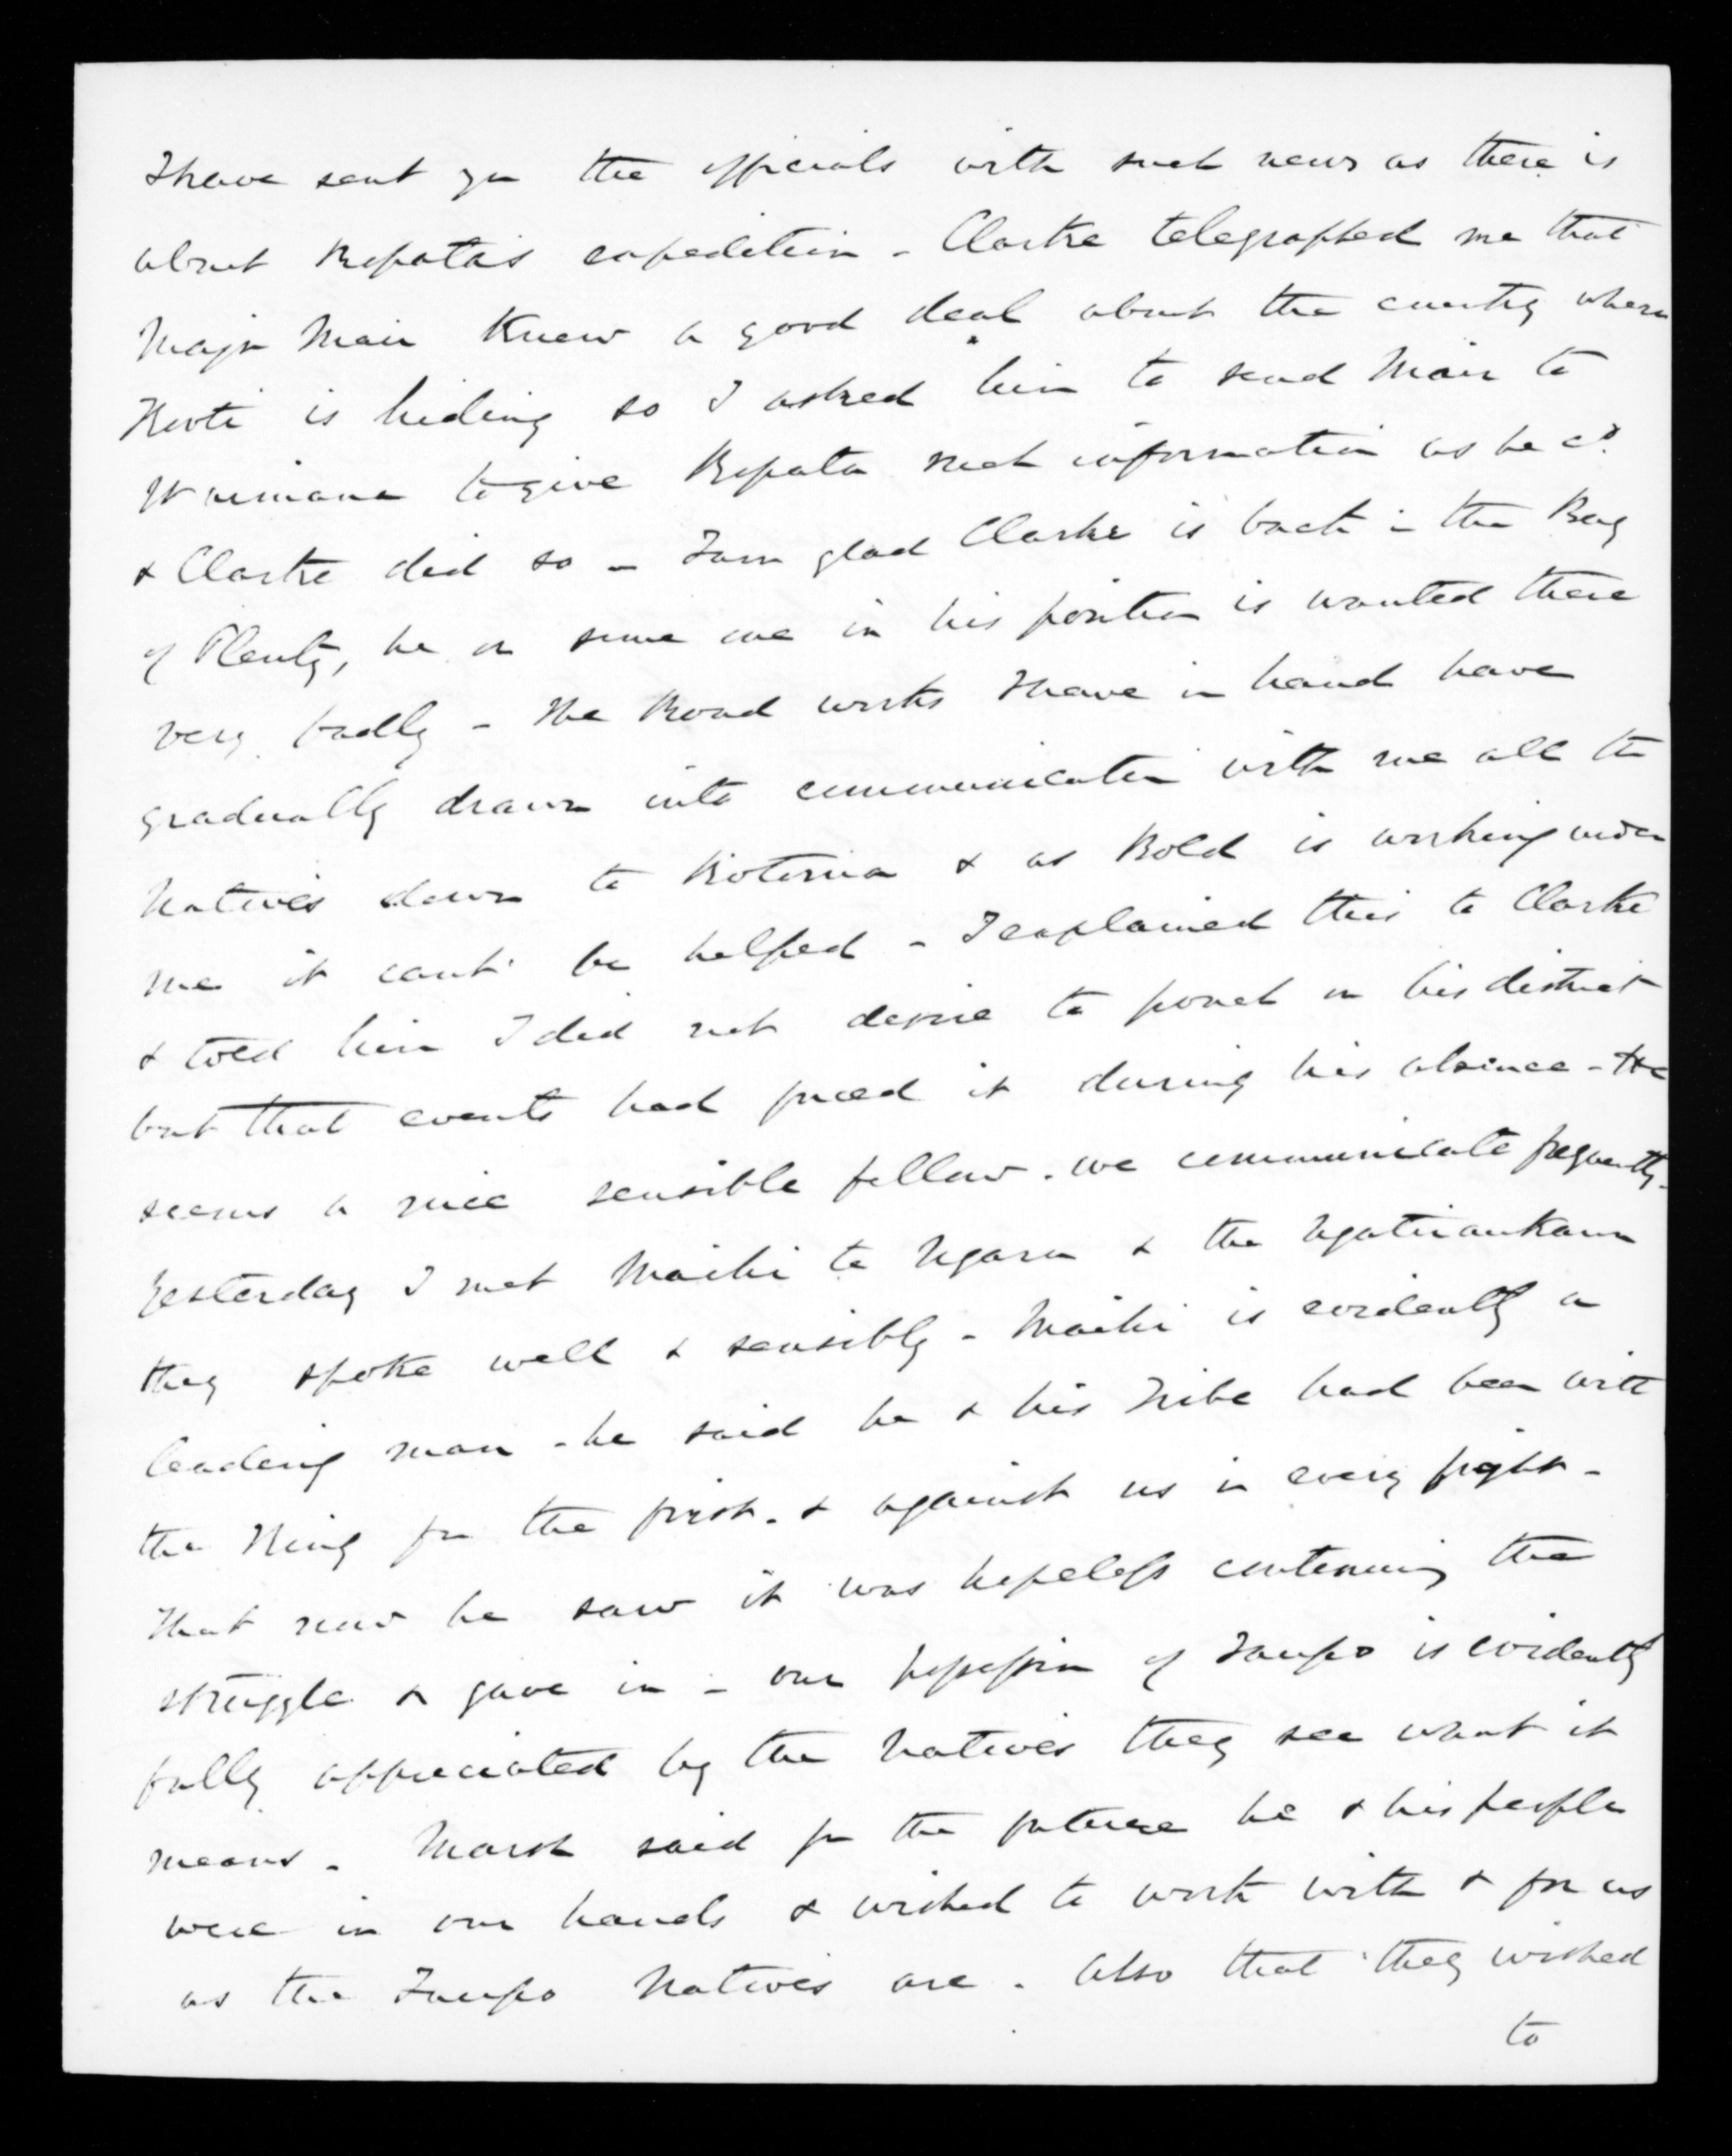 I have sent you the officials with such news as there is
about Ropata's expedition - Clarke telegraphed me that
Major Mair knew a good deal about the country where
Kooti is hiding so I asked him to send Mair to
Waimana to give Ropata such information as he cd.
& Clarke did so - I am glad Clarke is back in the Bay
of Plenty, he or some one in his position is wanted there
very badly - The Road works I have in hand have
gradually drawn into communication with me all the
Natives down to Rotorua & as Bold is working under
me it can't be helped - I explained this to Clarke
& told him I did not desire to poach on his district
but that events had forced it during his absence - He
seems a nice sensible fellow. we communicate frequently.
Yesterday I met Maihi te Ngaru & the Ngatiraukawa
they spoke well & sensibly - Maihi is evidently a
leading man - he said he & his Tribe had been with
the King fm the first. & against us in every fight -
That now he saw it was hopeless continuing the
struggle & gave in - our possession of Taupo is evidently
fully appreciated by the Natives they see what it
means - said for the future he & his people
were in our hands & wished to work with & for us
as the Taupo Natives are. Also that they wished
to